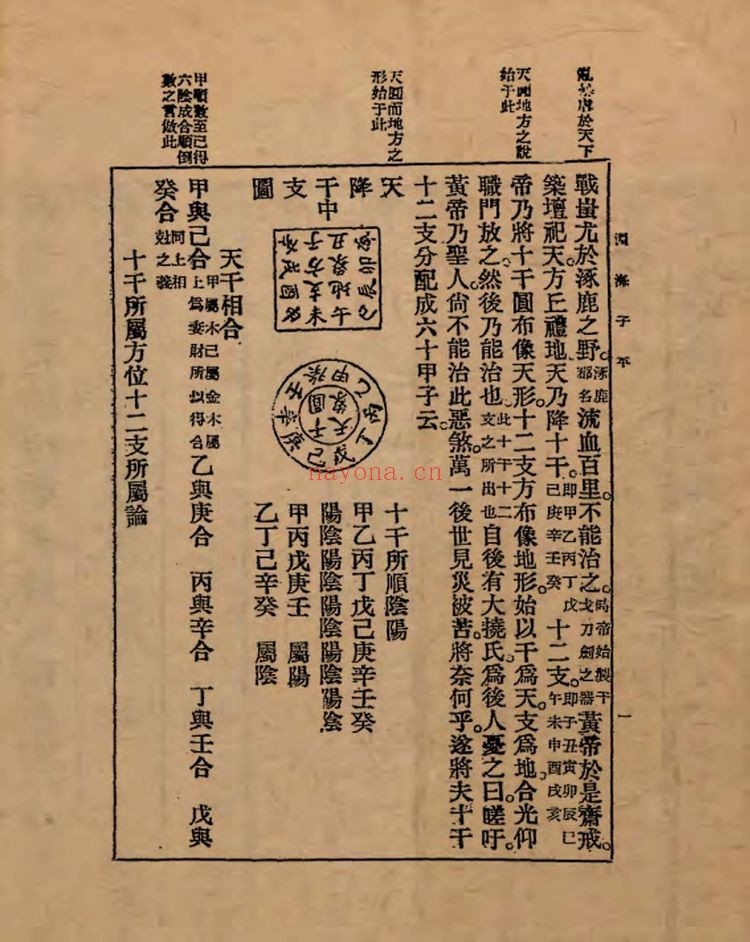 亂禁虐於天下
天圓地方之說
始于此
天圓而地方之
形始于此
甲順數至己得
六陰成合順倒
數之言倣此
淵海子平
一
戰蚩尤於涿鹿之野。涿鹿郡名流血百里。不能治之。時帝始製干戈刀劍之器黃帝於是齋戒。
築壇祀天方丘禮地天乃降十干。即甲乙丙丁戊己庚辛壬癸十二支。即子丑寅卯辰巳午未申酉戌亥
帝乃將十干圓布像天形。十二支方布像地形。始以干爲天。支爲地。合光仰
職門放之。然後乃能治也。此十干十二支之所出也自後有大撓氏。爲後人憂之曰。嗟吁。
黃帝乃聖人。尙不能治此惡煞。萬一後世見災被苦。將奈何乎。遂將夫十干
十二支分配成六十甲子云。
天降干支圖
中
十干所順陰陽
甲乙丙丁戊己庚辛壬癸
陽陰陽陰陽陰陽陰陽陰
甲丙戊庚壬 屬陽
乙丁己辛癸 屬陰
天干相合
甲與己合甲屬木己屬金木屬上爲妻財所以得合乙與庚合 丙與辛合 丁與壬合 戊與
癸合同上相尅之義
十干所屬方位十二支所屬論
nayona.cn